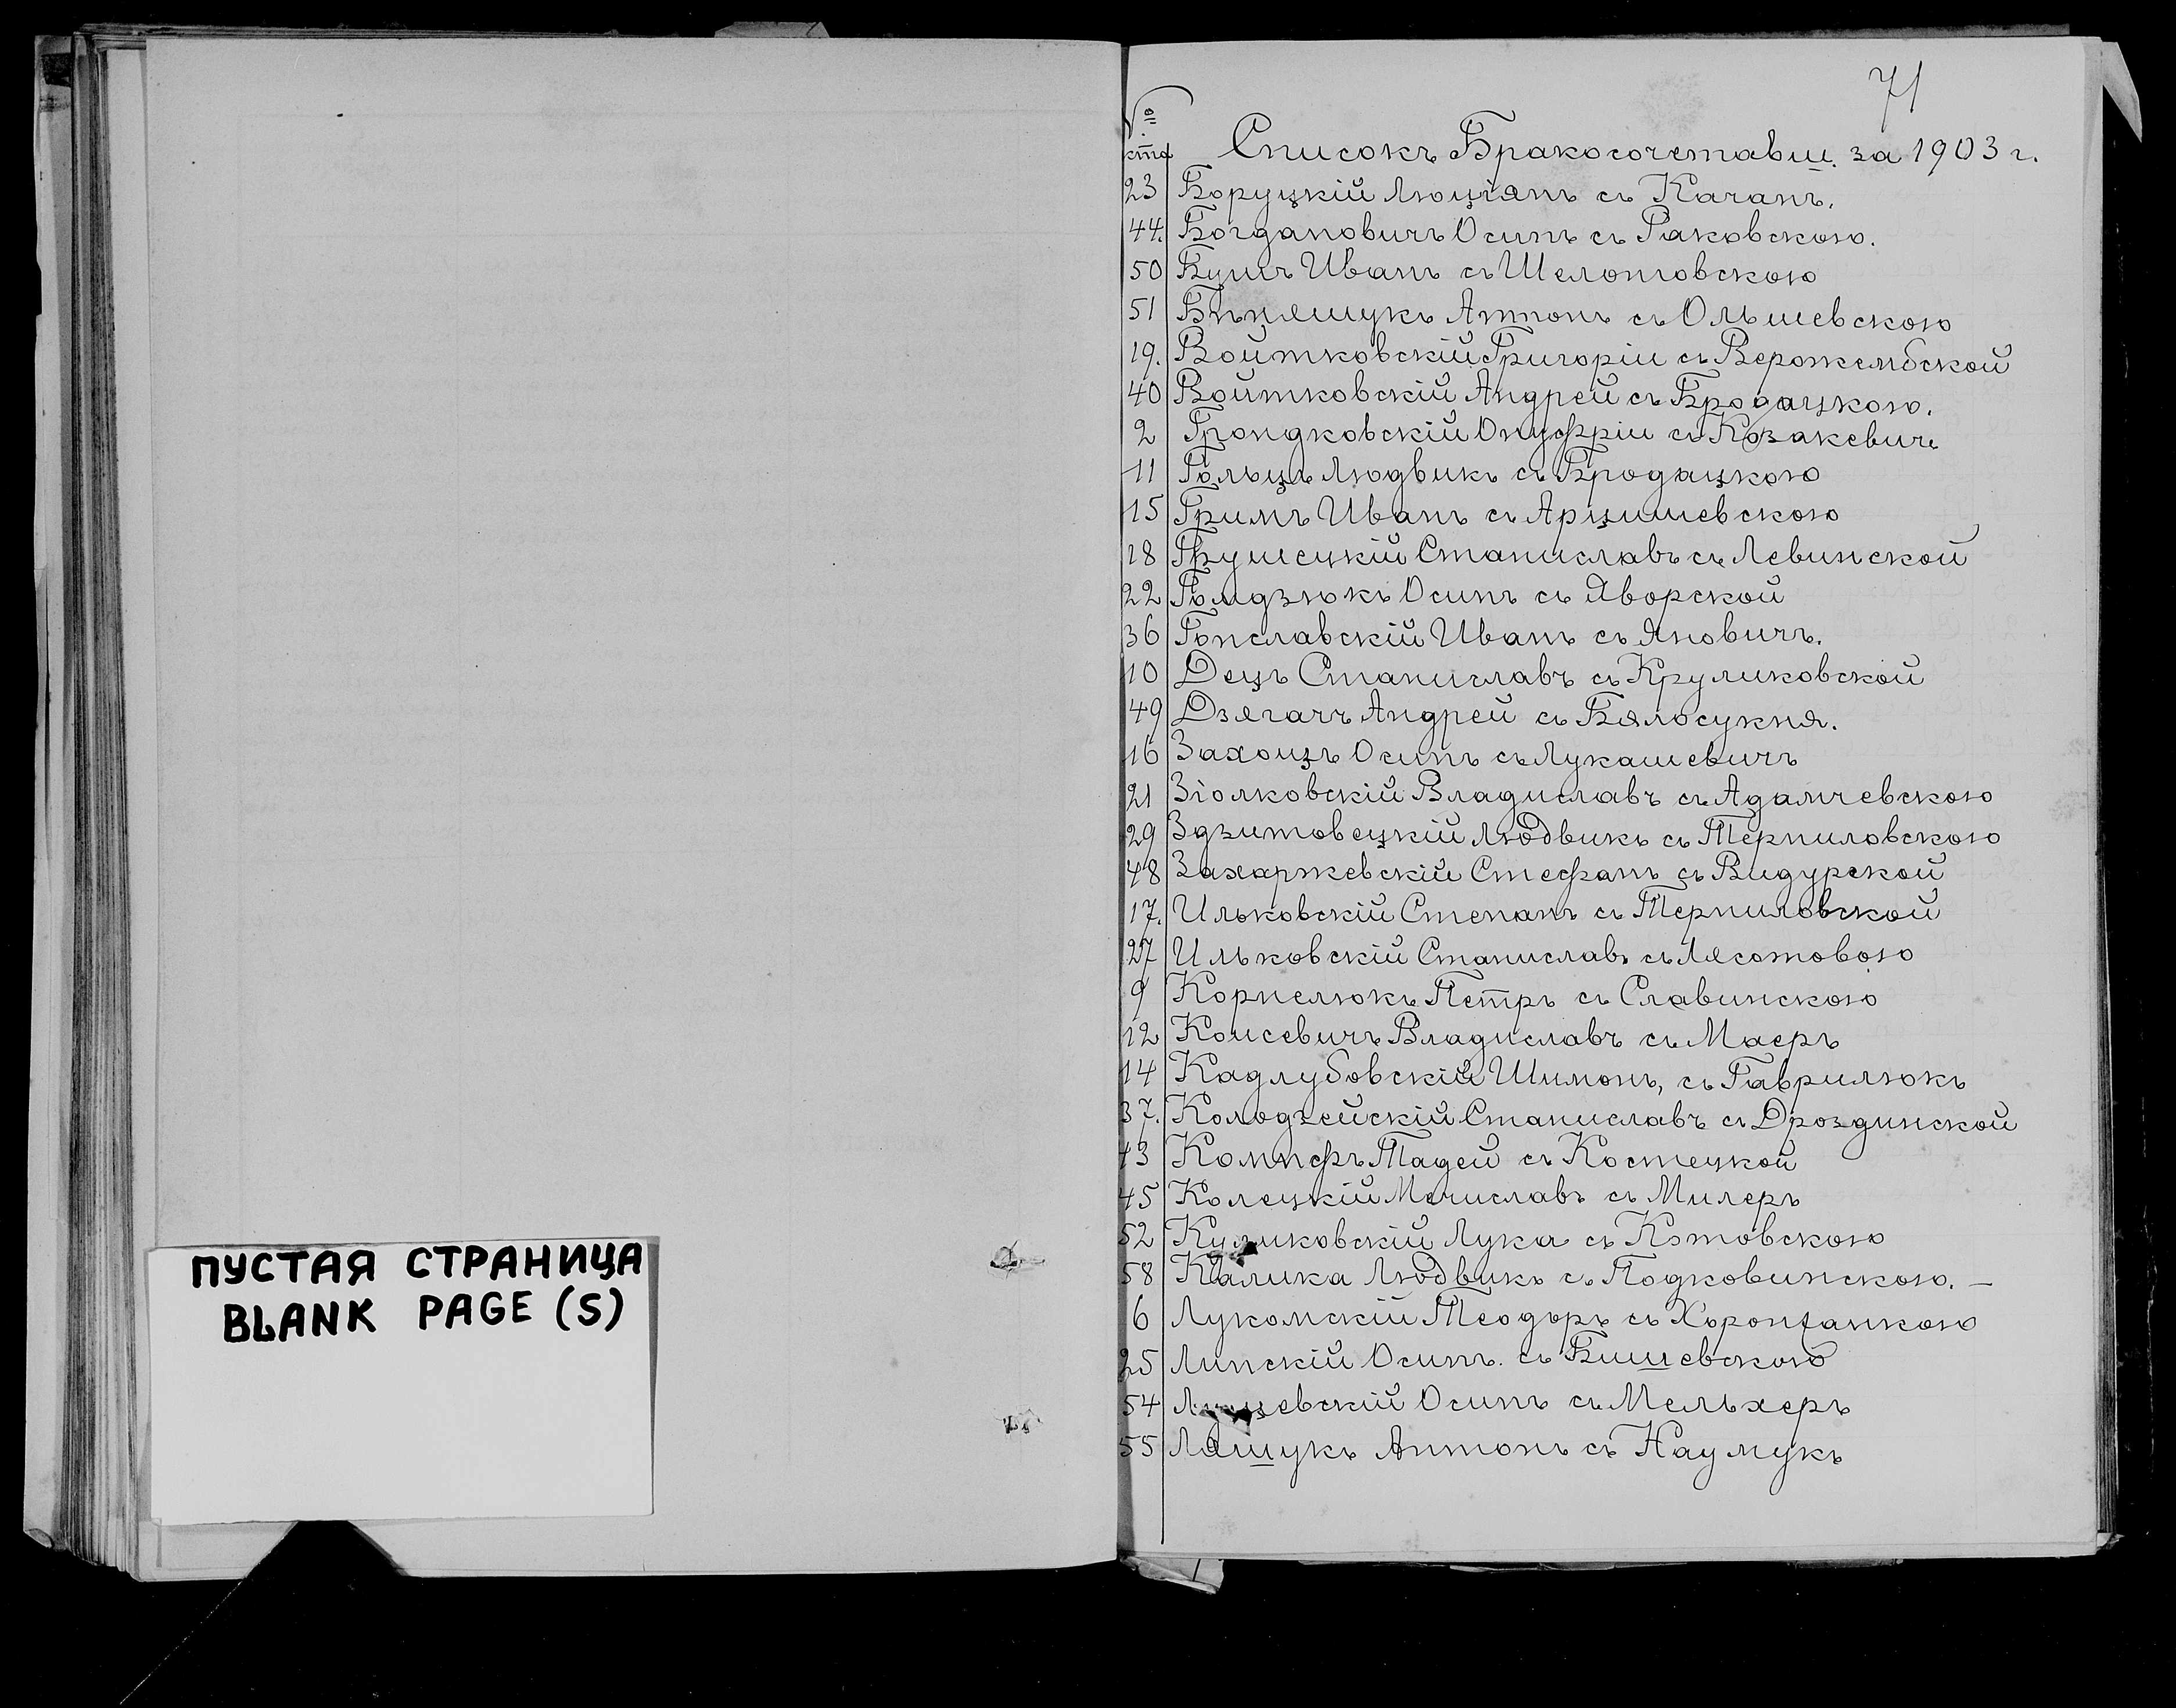 ПУСТАЯ СТРАНИЦА
BLANK PAGE (S)
71
№
Списокъ Бракосочетавш. за 1903 г.
23 Боруцкій Люціянъ съ Качанъ.
44. Богдановичъ Осипъ съ Раковскою.
50 Бушъ Иванъ съ Шелютовскою
51 Антонъ съ Ольшевскою
19. Войтковскій Григорій съ
40 Войтковскій Андрей съ Бродацкою.
2 Грондковскій Онуфрій съ Козакевичъ
11 Гольцъ Людвикъ съ Бродацкою
15 Гримъ Иванъ съ Арцишевскою
18 Грушецкій Станиславъ съ Левинской
22 Голидзюкъ Осипъ съ Яворской
36 Гонславскій Иванъ съ Яновичъ.
10 Децъ Станиславъ съ Круликовской
49 Дзягачъ Андрей съ Бялосукня.
16 Захоцъ Осипъ съ Лукашевичъ
21 Зіолковскій Владиславъ съ Адамчевскою
29 Здзитовецкій Людвикъ съ Терпиловскою
48 Захаржевскій Стефанъ съ Видурской
17. Ильковскій Степанъ съ Терпиловской
27 Ильковскій Станиславъ съ Лясотовою
9 Корнелюкъ Петръ съ Славинскою
12 Концевичъ Владиславъ съ Маеръ
14 Кадлубовскій Шимонъ, съ Гаврилюкъ
37. Колодзейскій Станиславъ съ Дроздинской
43 Компфъ Тадей съ Костецкой
45 Колецкій Мечиславъ съ Милеръ
52 Куликовскій Лука съ Котовскою
58 Калика Людвикъ съ Подковинскою. —
6 Лукомскій Теодоръ съ Хоронжанкою
25 Липскій Осипъ. съ Бишевскою
54 Осипъ съ Мельхеръ
55 Ляшукъ Антонъ съ Наумукъ